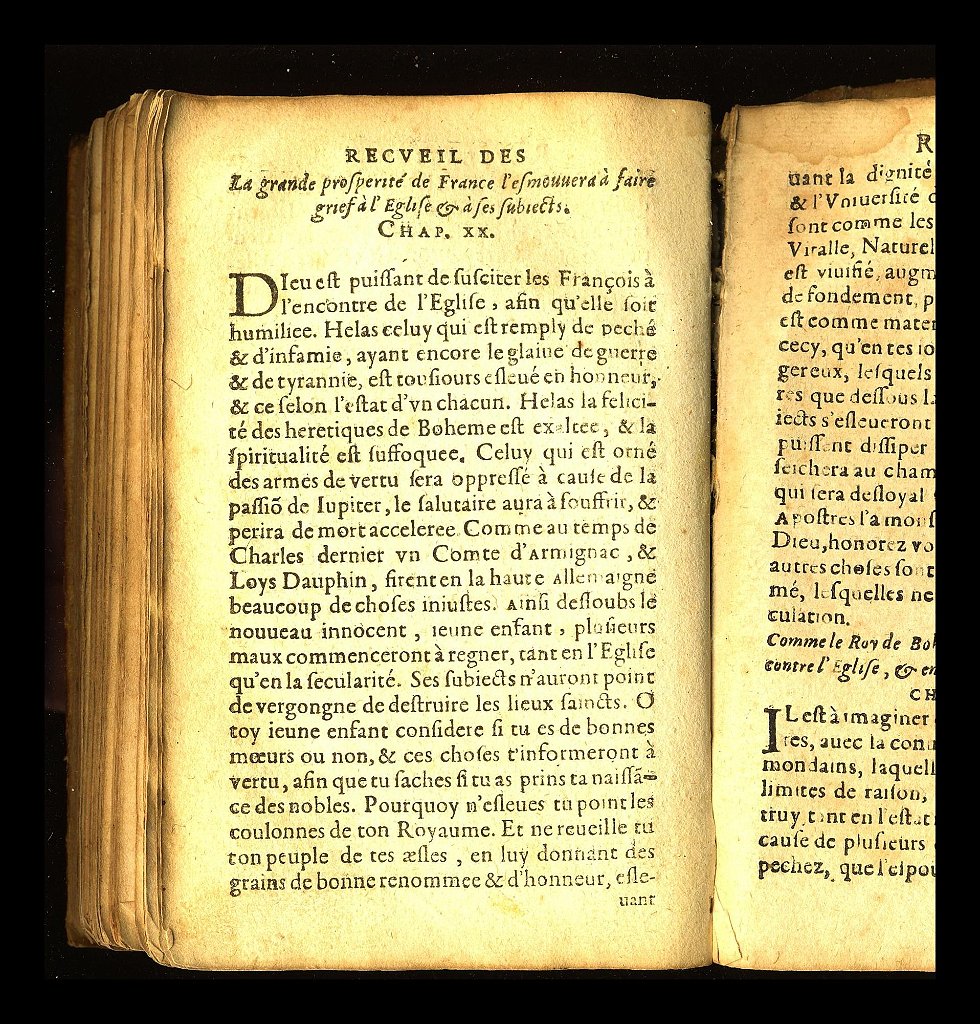 RECVEIL DES
La grande prosperité de France l'esmouuera à faire
grief à l'Eglise & à ses subiects.
CHAP. XX.
DIeu est puissant de susciter les François à
l'encontre de l'Eglise, afin qu'elle soit
humiliee. Helas celuy qui est remply de peché
& d'infamie, ayant encore le glaiue de guerre
& de tyrannie, est tousiours esleué en honneur,
& ce selon l'estat d'vn chacun. Helas la felici-
té des heretiques de Boheme est exaltee, & la
spiritualité est suffoquee. Celuy qui est orné
des armes de vertu sera oppressé à cause de la
passiõ de Iupiter, le salutaire aura à souffrir, &
perira de mort acceleree. Comme au temps de
Charles dernier vn Comte d'Armignac, &
Loys Dauphin, firent en la haute Allemaigne
beaucoup de choses iniustes. Ainsi dessoubs le
nouueau innocent, ieune enfant, plusieurs
maux commenceront à regner, tant en l'Eglise
qu'en la secularité. Ses subiects n'auront point
de vergongne de destruire les lieux saincts. O
toy ieune enfant considere si tu es de bonnes
mœurs ou non, & ces choses t'informeront à
vertu, afin que tu saches si tu as prins ta naissã-
ce des nobles. Pourquoy n'esleues tu point les
coulonnes de ton Royaume. Et ne reueille tu
ton peuple de tes æsles, en luy donnant des
grains de bonne renommee & d'honneur, esle-
uant
R
uant la dignité
& l'Vniuersité
sont comme les
Viralle, Naturel
est viuifié, augm
de fondement, p
est comme mater
cecy, qu'en tes io
gereux, lesquels
res que dessous l
iects s'esleueront
puissent dissiper
seichera au cham
qui sera desloyal
Apostres l'a mons
Dieu, honorez vo
autres choses sont
mé, lesquelles ne
culation.
Comme le Roy de Bo
contre l'Eglise, & en
CH
IL est à imaginer
res, auec la conu
mondains, laquell
limites de raison,
truy, tant en l'estat
cause de plusieurs
pechez, que l'espou